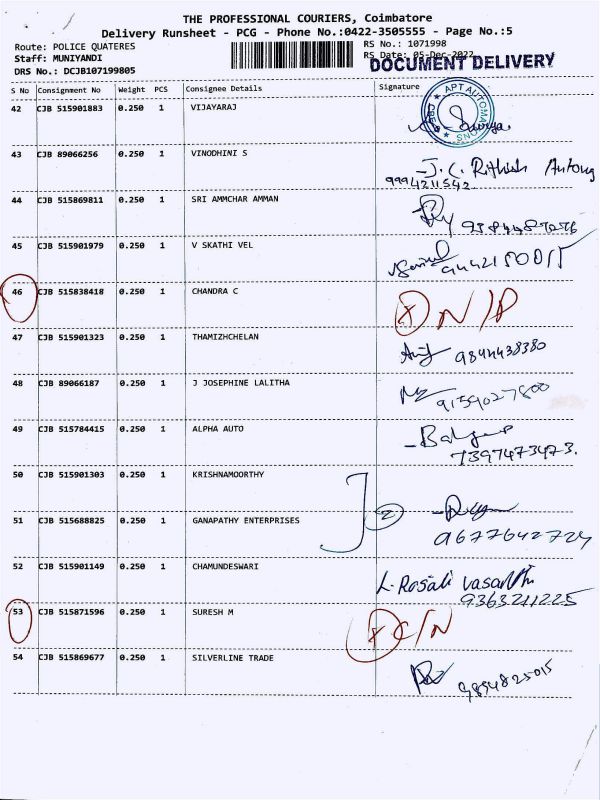 THE PROFESSIONAL COURIERS, Coimbatore
Delivery Runsheet - PCG - Phone No.:0422-3505555 - Page No.:5
Route: POLICE QUATERES
RS No.: 1071998
Staff: MUNIYANDI
RS Date: 05-Dec-2022
DRS No.: DCJB107199805
DOCUMENT DELIVERY
S No Consignment No Weight PCS Consignee Details Signature
APT AUTOMATIONS
42 CJB 515901883 0.250 1 VIJAYARAJ
43 CJB 89066256 0.250 1 VINODHINI S J.C. Rithish Antony
9994211542
44 CJB 515869811 0.250 1 SRI AMMCHAR AMMAN
45 CJB 515901979 0.250 1 V SKATHI VEL
46 CJB 515838418 0.250 1 CHANDRA C X N/A
47 CJB 515901323 0.250 1 THAMIZHCHELAN 9844438380
48 CJB 89066187 0.250 1 J JOSEPHINE LALITHA 9159027800
49 CJB 515784415 0.250 1 ALPHA AUTO
7397473473.
50 CJB 515901303 0.250 1 KRISHNAMOORTHY
51 CJB 515688825 0.250 1 GANAPATHY ENTERPRISES 2
9677642724
52 CJB 515901149 0.250 1 CHAMUNDESWARI L. Rosali Vasanthi
9363211225
53 CJB 515871596 0.250 1 SURESH M X C/N
54 CJB 515869677 0.250 1 SILVERLINE TRADE 9894825015